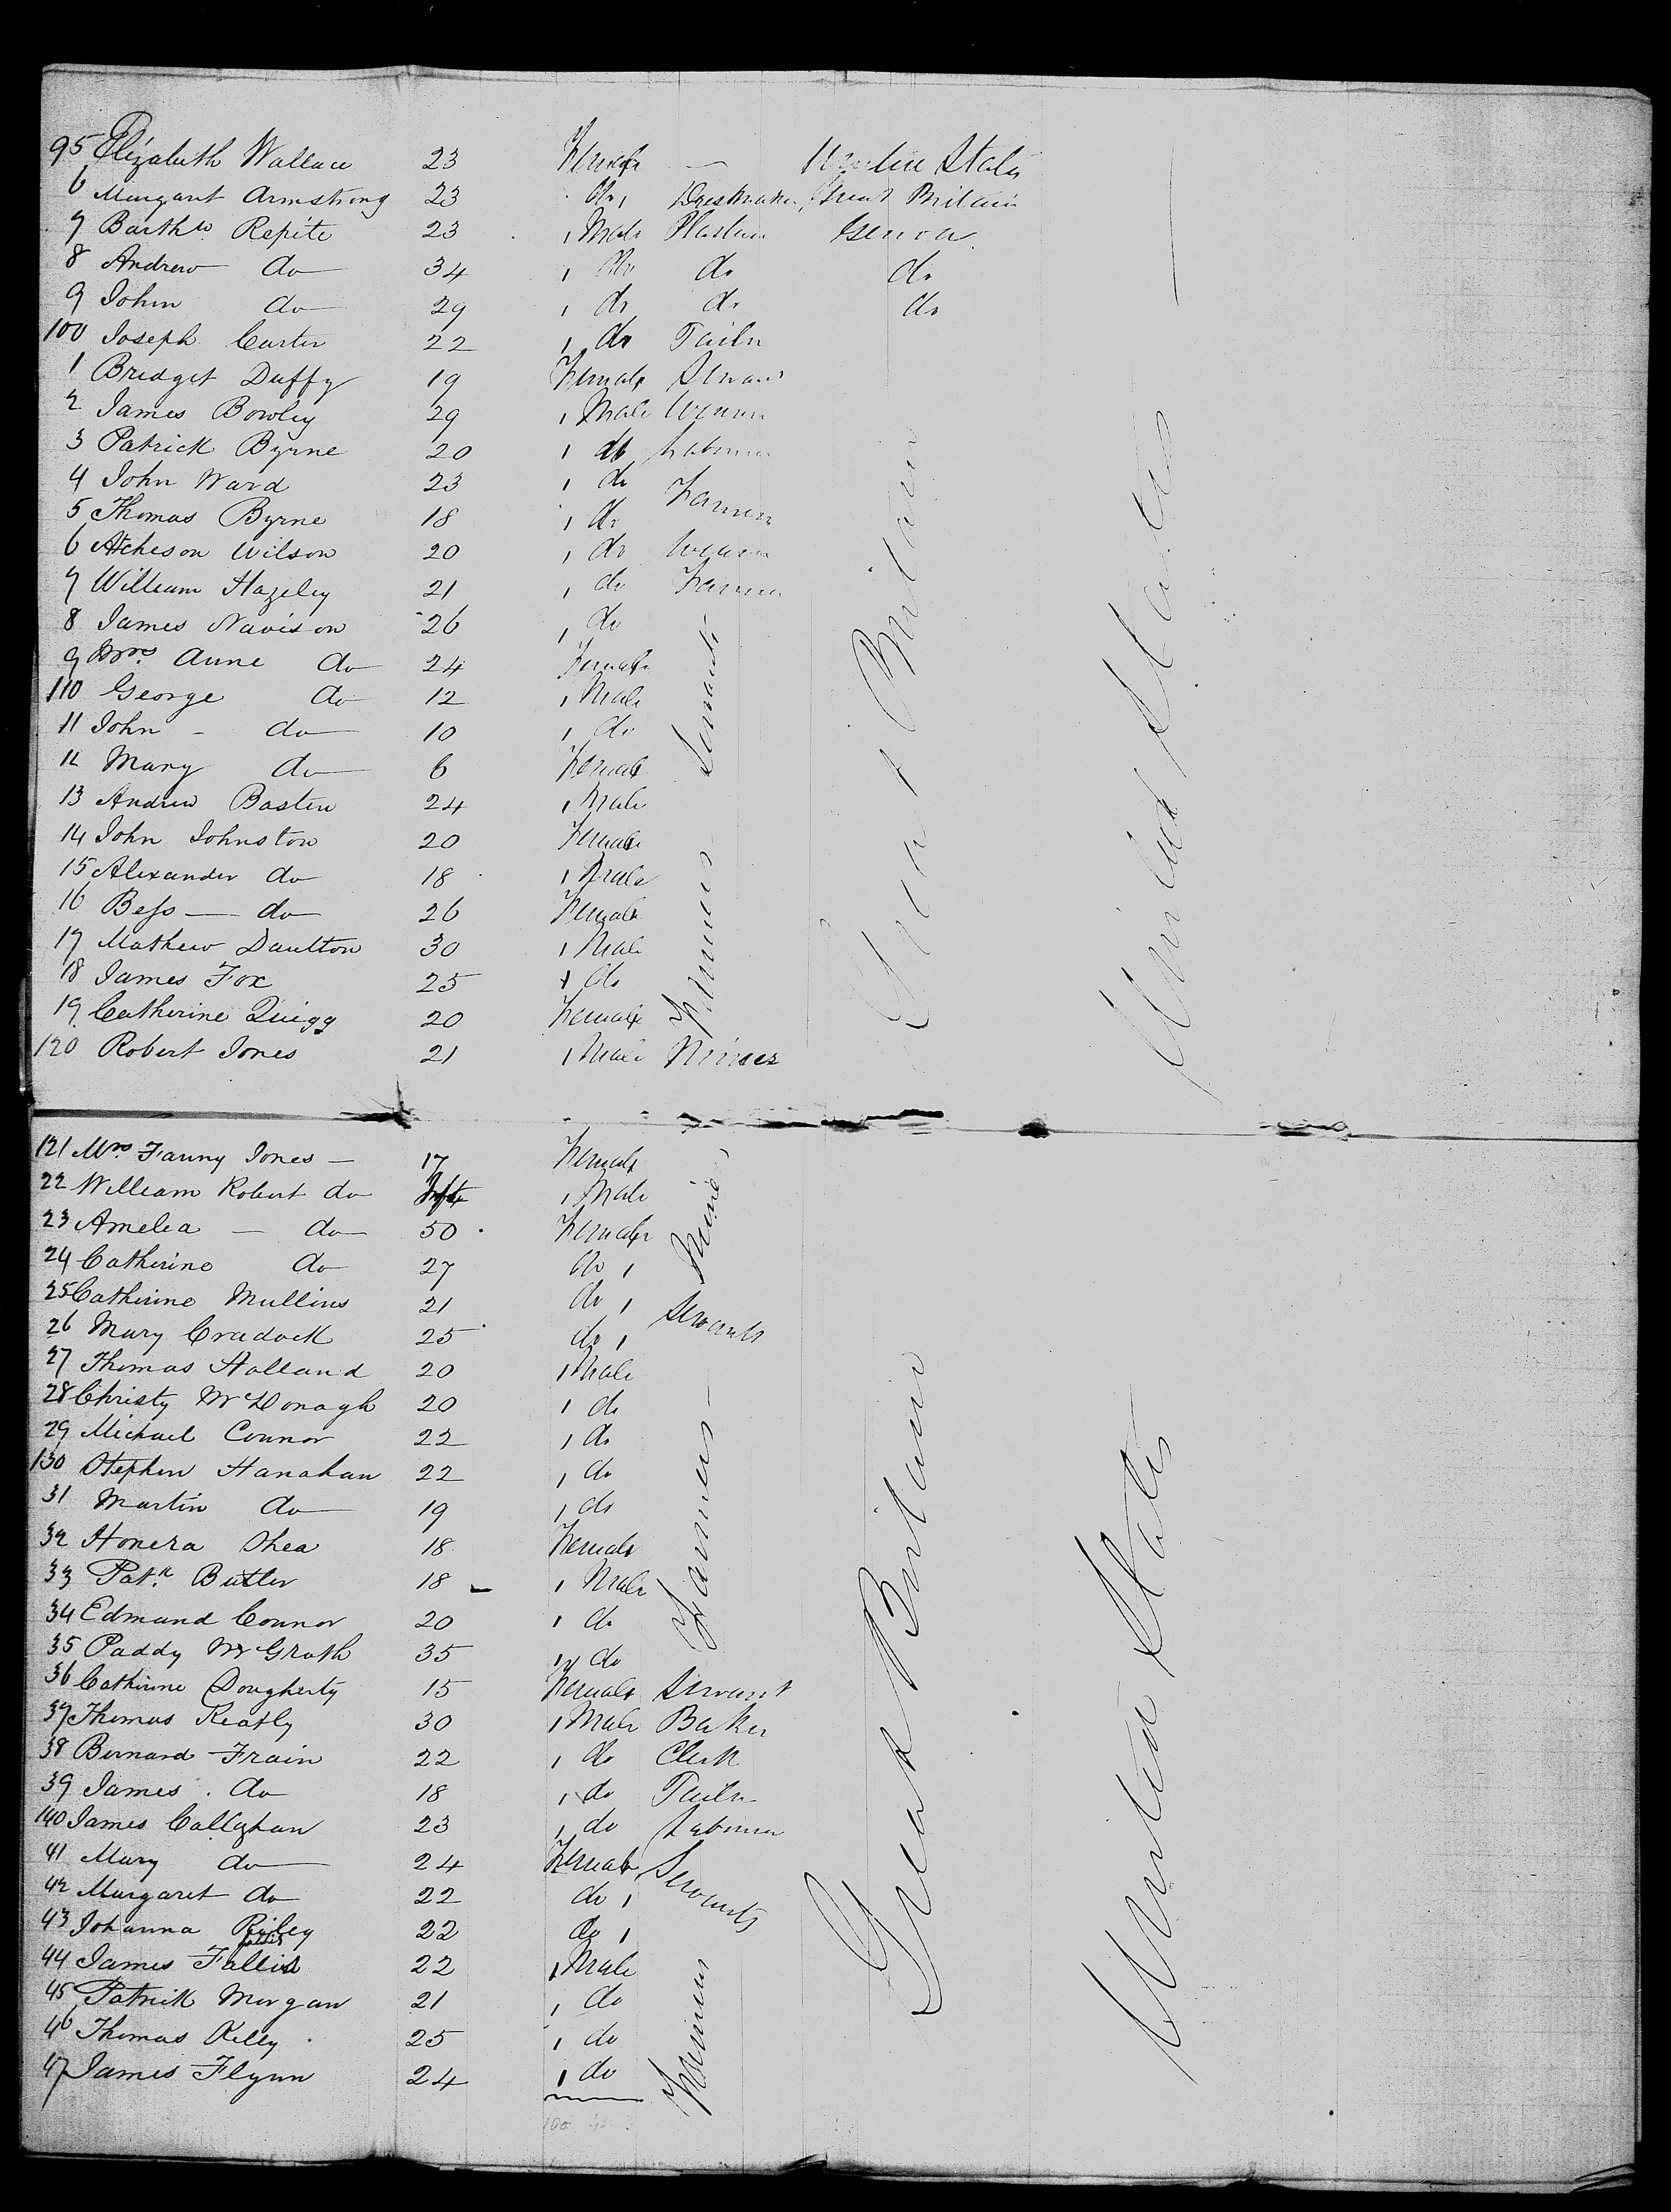 95 Elizabeth Wallace 23 Female — United States
6 Margaret Armstrong 23 do, Dressmaker, Great Britain
7 Barthw Repite 23 , Male Genoa
8 Andrew do 34 , do do do
9 John do 29 , do do do
100 Joseph Carter 22 , do Tailor
1 Bridget Duffy 19 Female Servant
2 James Bowley 29 , Male Weaver
3 Patrick Byrne 20 , do Labourer
4 John Ward 23 , do
5 Thomas Byrne 18 , do Farmers
6 Atcheson Wilson 20 , do Weaver
7 William Hazeley 21 , do Farmer
8 James Navison 26 , do
9 Mrs. Anne do 24 Female
110 George do 12 , Male
11 John - do 10 , do
12 Mary do 6 Female
13 Andrew Basten 24 , Male
14 John Johnston 20 Female
15 Alexander do 18 , Male
16 Bess — do 26 Female
17 Mathew Daulton 30 , Male
18 James Fox 25 , do
19 Catherine Quigg 20 Female
120 Robert Jones 21 , Male Miner
Farmers Servants
Great Britain
United States
121 Mrs. Fanny Jones — 17 Female
22 William Robert do Inft , Male
23 Amelia — do 50 Female
24 Catherine do 27 do ,
25 Catherine Mullins 21 do ,
26 Mary Cradock 25 do , Servants
27 Thomas Holland 20 , Male
28 Christy McDonagh 20 , do
29 Michael Connor 22 , do
130 Stephen Hanahan 22 , do
31 Martin do 19 , do
32 Honera Shea 18 Female
33 Patk. Butler 18 , Male
34 Edmund Connor 20 , do
35 Paddy McGrath 35 , do
36 Catherine Dougherty 15 Female Servant
37 Thomas Keatly 30 , Male Baker
38 Bernard Frain 22 , do Clerk
39 James do 18 , do Tailor
140 James Callaghan 23 , do Labourer
41 Mary do 24 Female Servants
42 Margaret do 22 do ,
43 Johanna Riley 22 do ,
44 James Fallis 22 , Male
45 Patrick Morgan 21 , do
46 Thomas Kelly 25 , do
47 James Flynn 24 , do
Miner
Farmers
Farmers
Great Britain
United States